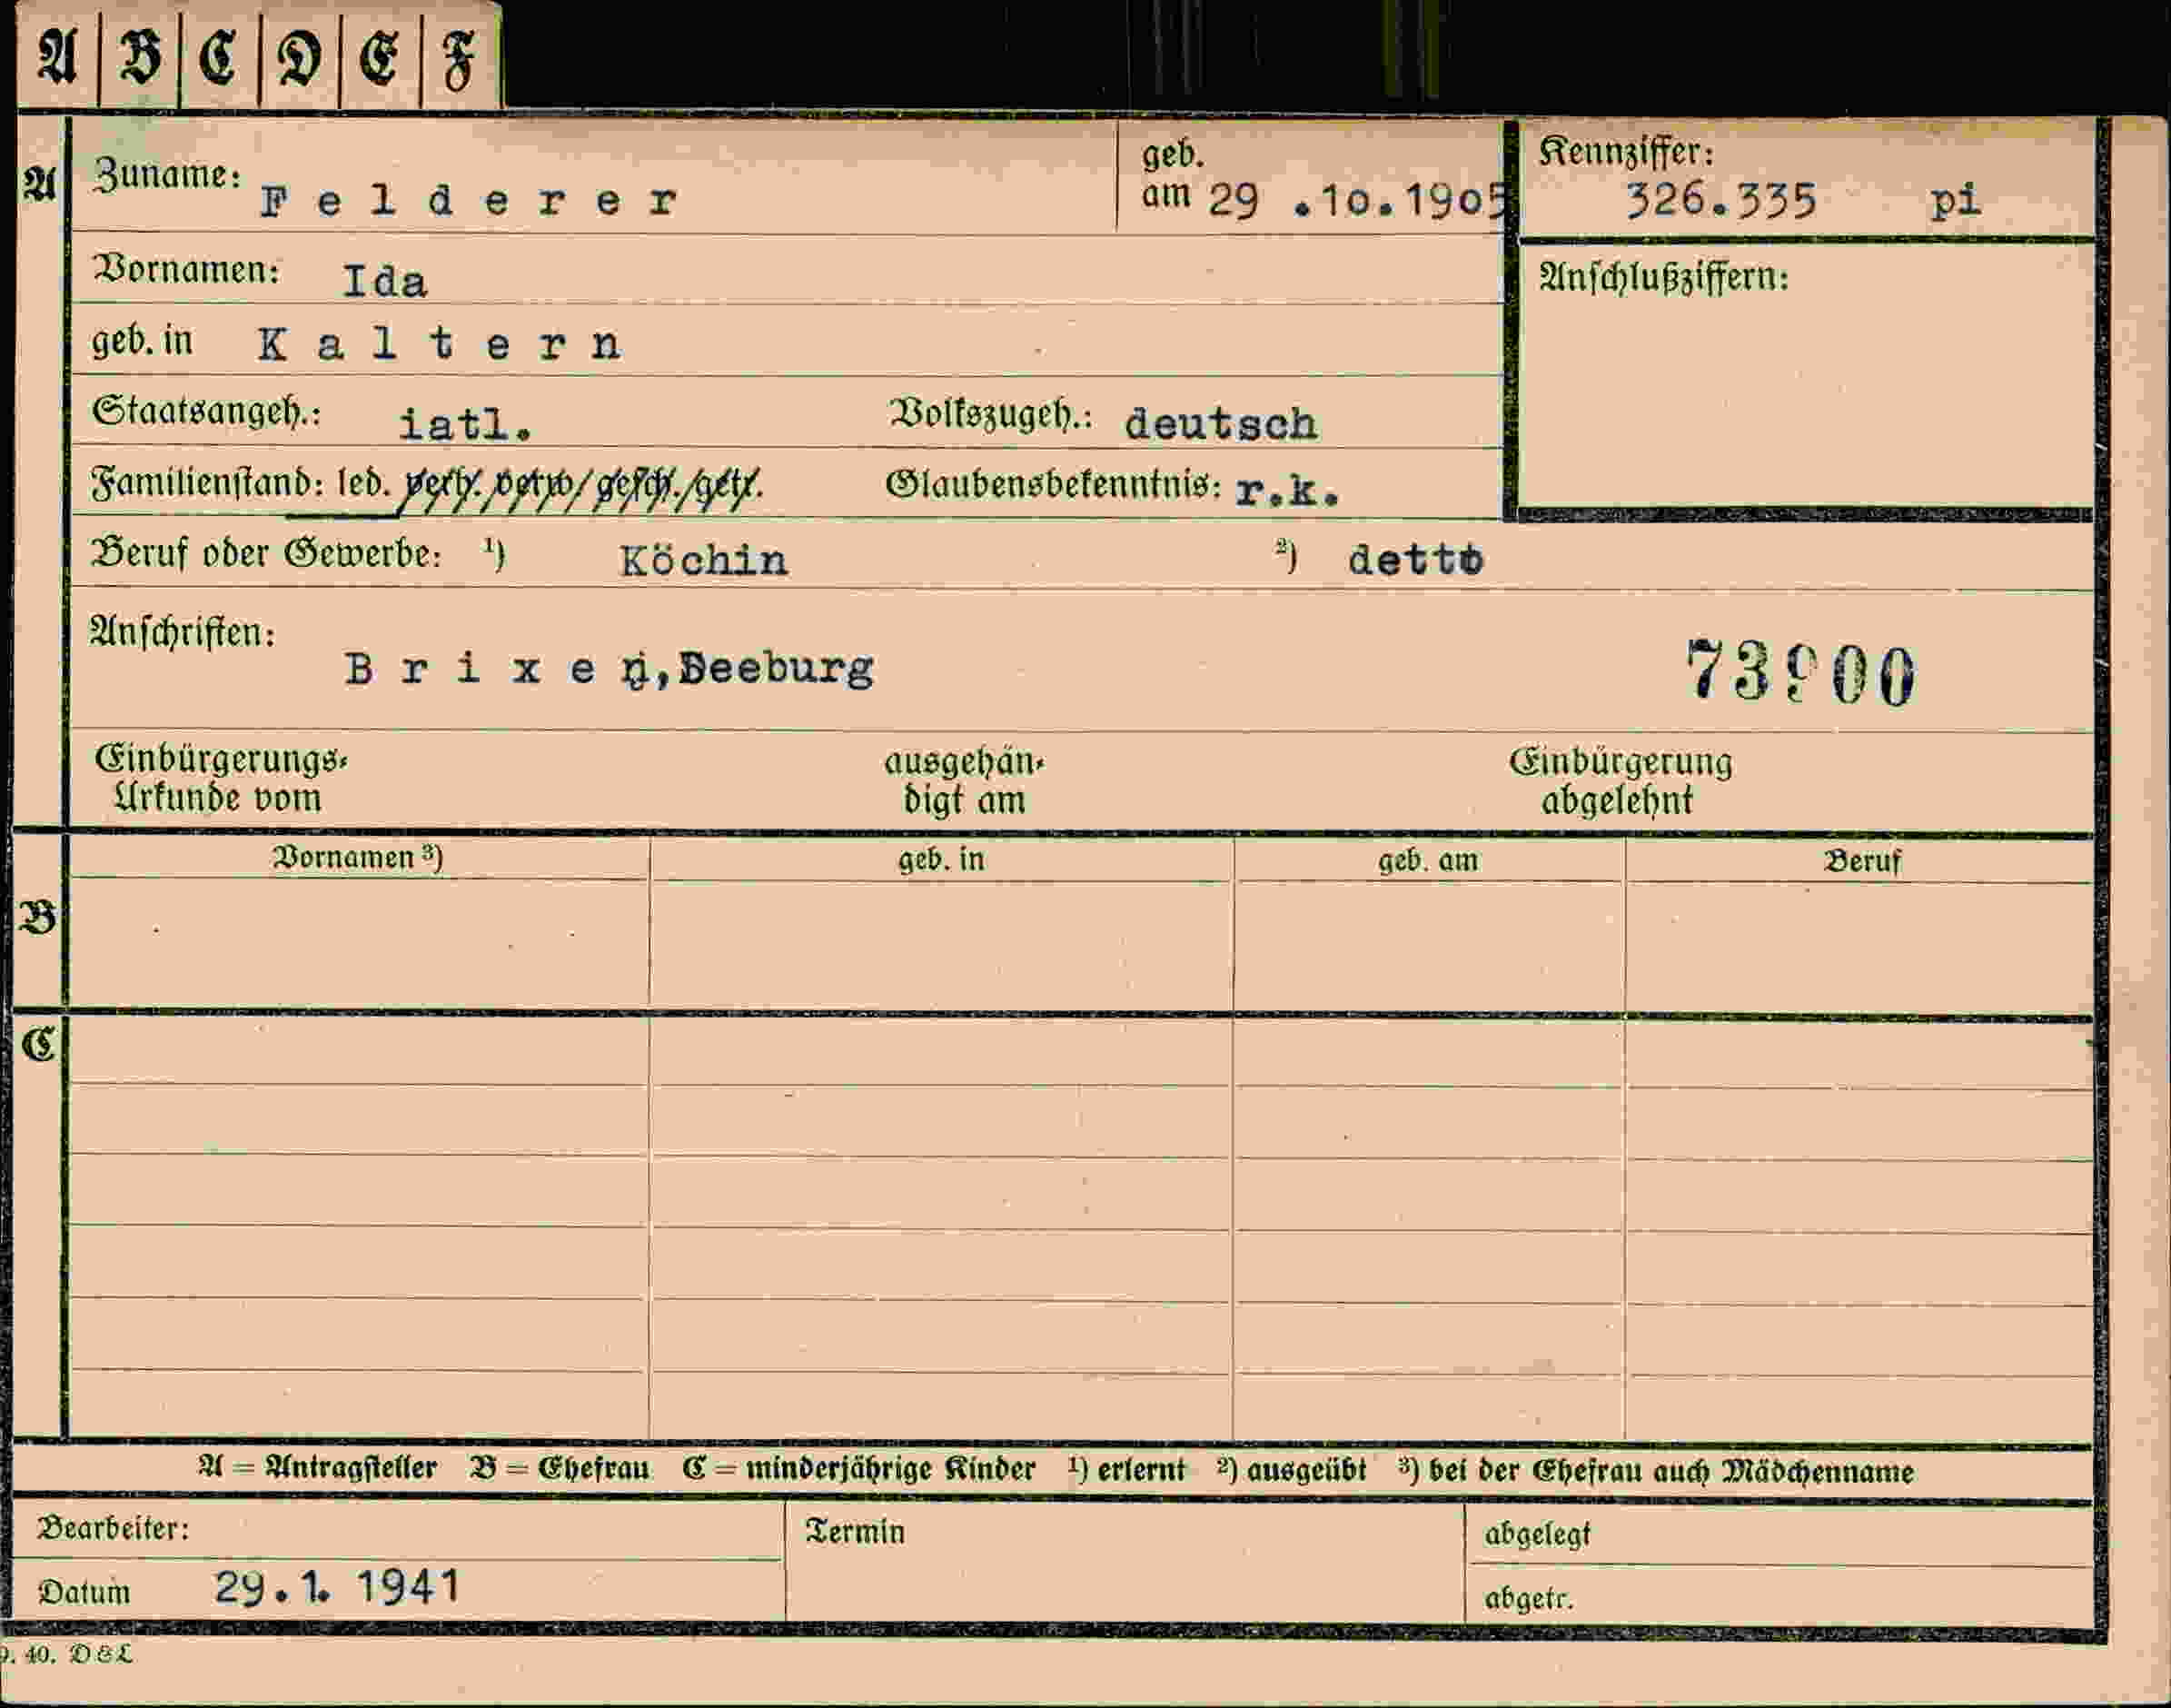 A B C D E F
A Zuname: Felderer geb. am 29 .10.1905 Kennziffer: 326.335 pi
Vornamen: Ida Anschlußziffern:
geb. in Kaltern
Staatsangeh.: iatl. Volkszugeh.: deutsch
Familienstand: led. verh. verw/ gesch./getr. Glaubensbekenntnis: r.k.
Beruf oder Gewerbe: 1) Köchin 2) detto
Anschriften: Brixen, Seeburg
Einbürgerungs-Urkunde vom ausgehändigt am Einbürgerung abgelehnt
Vornamen 3) geb. in geb. am Beruf
B
C
A = Antragsteller B = Ehefrau C = minderjährige Kinder 1) erlernt 2) ausgeübt 3) bei der Ehefrau auch Mädchenname
Bearbeiter: Termin abgelegt
Datum 29.1. 1941 abgetr.
40. D&L